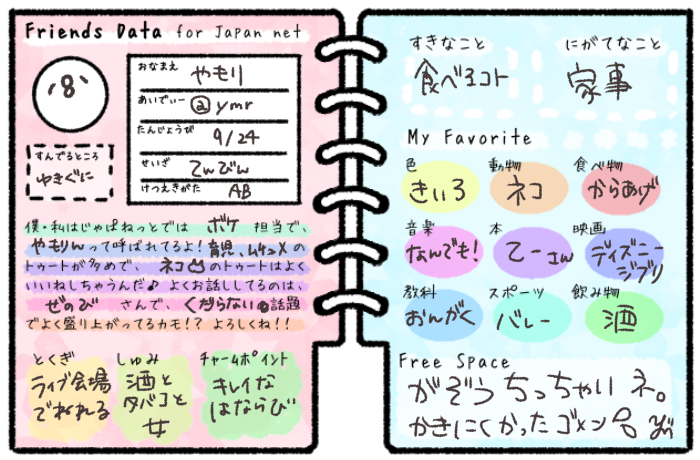 Friends Data for Japan net
おなまえ やもり
あいでぃー @ymr
たんじょうび 9/24
せいざ てんびん
けつえきがた AB
すんでるところ
ゆきぐに
僕・私はじゃぱねっとでは ボケ 担当で、
やもりんって呼ばれてるよ! 育児、ムチュメの
トゥートが多めで、 ネコ のトゥートはよく
いいねしちゃうんだ♪ よくお話ししてるのは、
ぜのび さんで、くだらない の話題
でよく盛り上がってるカモ!? よろしくね!!
とくぎ
ライブ会場
でねれる
しゅみ
酒と
タバコと
女
チャームポイント
キレイな
はならび
すきなこと
食べるコト
にがてなこと
家事
My Favorite
色 動物 食べ物
きいろ ネコ からあげ
音楽 本 映画
なんでも! てーさん ディズニー
ジブリ
教科 スポーツ 飲み物
おんがく バレー 酒
Free Space
がぞう ちっちゃい ネ。
かきにくかった ゴメン